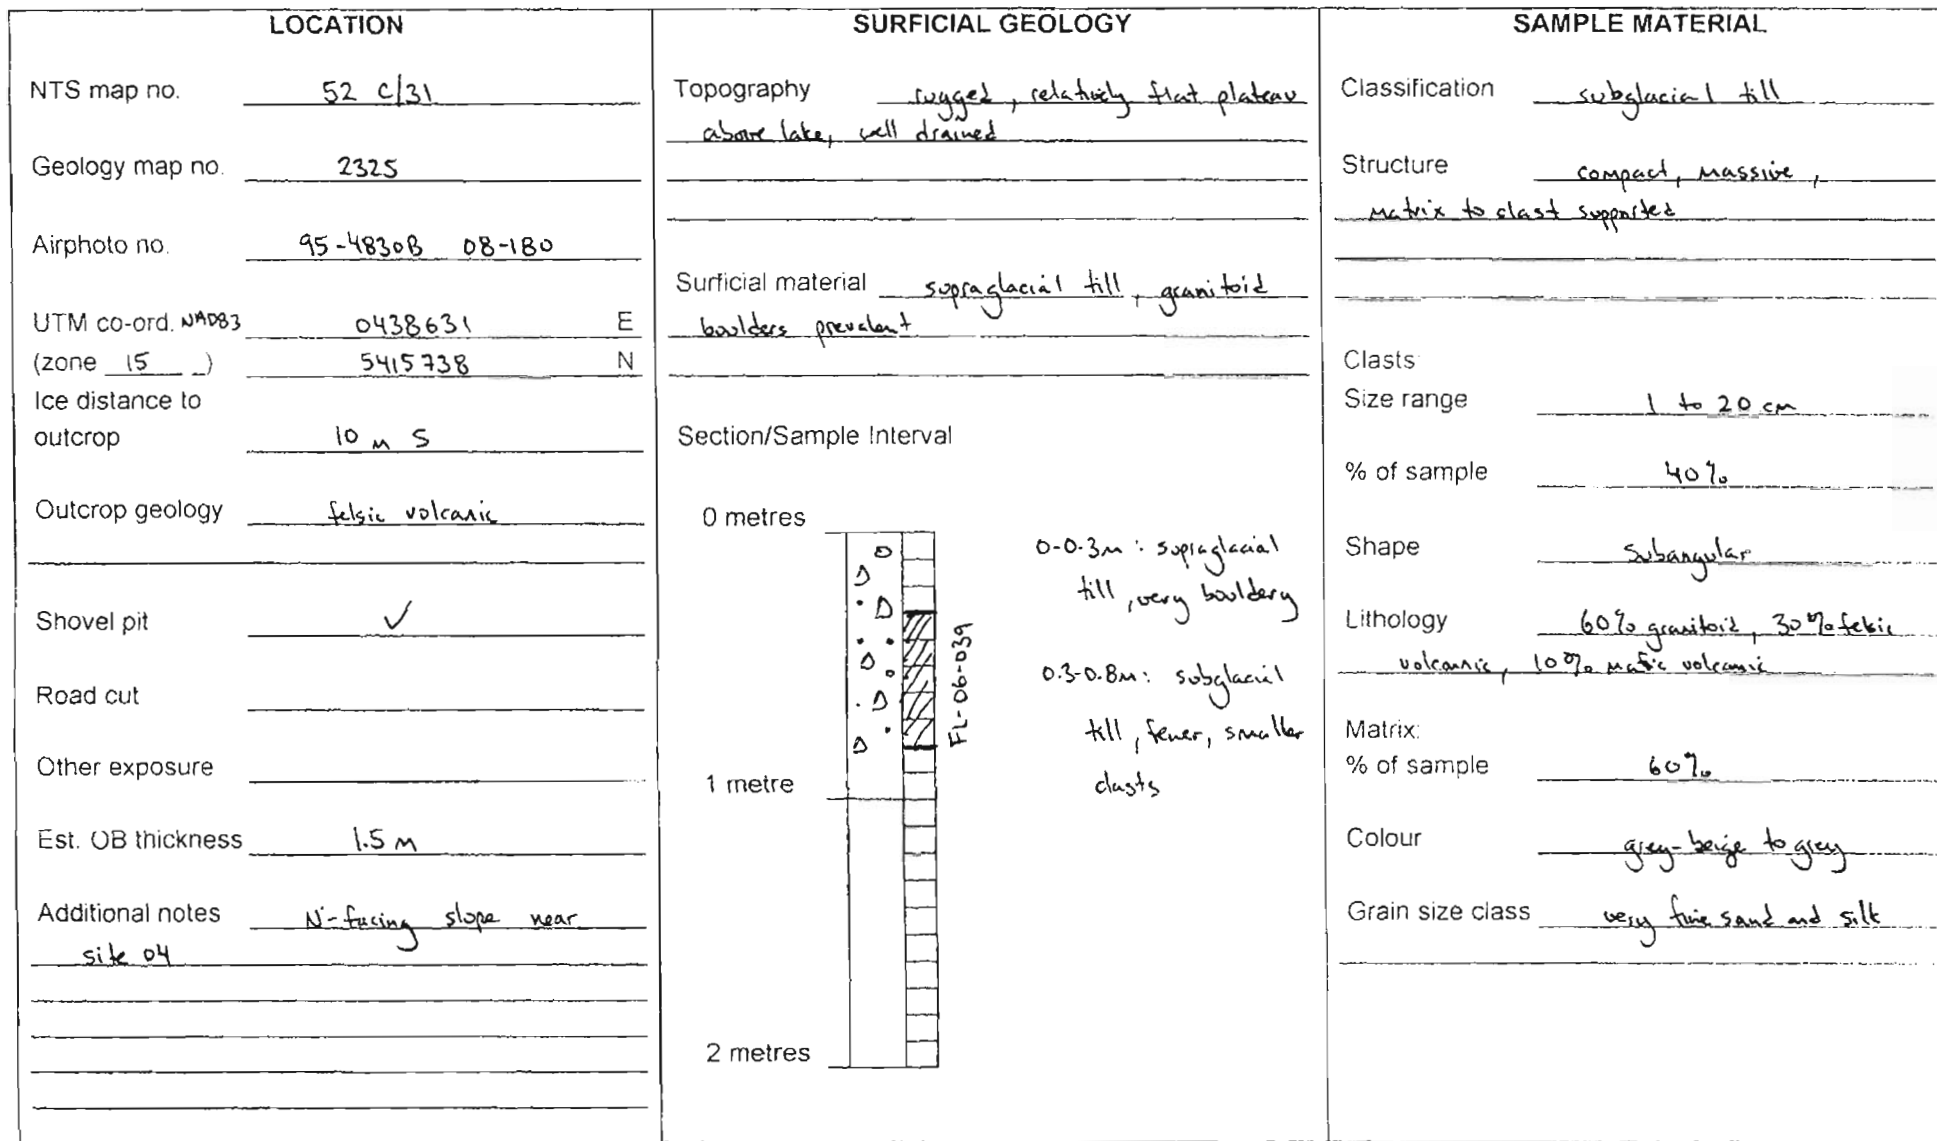 LOCATION
NTS map no. 52 C/31
Geology map no. 2325
Airphoto no. 95-4830B 08-180
UTM co-ord. NAD83 0438631 E
(zone 15 ) 5415738 N
Ice distance to
outcrop 10 m S
Outcrop geology felsic volcanic
Shovel pit ✓
Road cut
Other exposure
Est. OB thickness 1.5 m
Additional notes N-facing slope near
site 04
SURFICIAL GEOLOGY
Topography rugged, relatively flat plateau
above lake, well drained
Surficial material supraglacial till, granitoid
boulders prevalent
Section/Sample Interval
0 metres
0-0.3m: supraglacial
till, very bouldery
FL-06-039
0.3-0.8m: subglacial
till, fewer, smaller
clasts
1 metre
2 metres
SAMPLE MATERIAL
Classification subglacial till
Structure compact, massive,
matrix to clast supported
Clasts:
Size range 1 to 20 cm
% of sample 40%
Shape subangular
Lithology 60% granitoid, 30% felsic
volcanic, 10% mafic volcanic
Matrix:
% of sample 60%
Colour grey-beige to grey
Grain size class very fine sand and silt